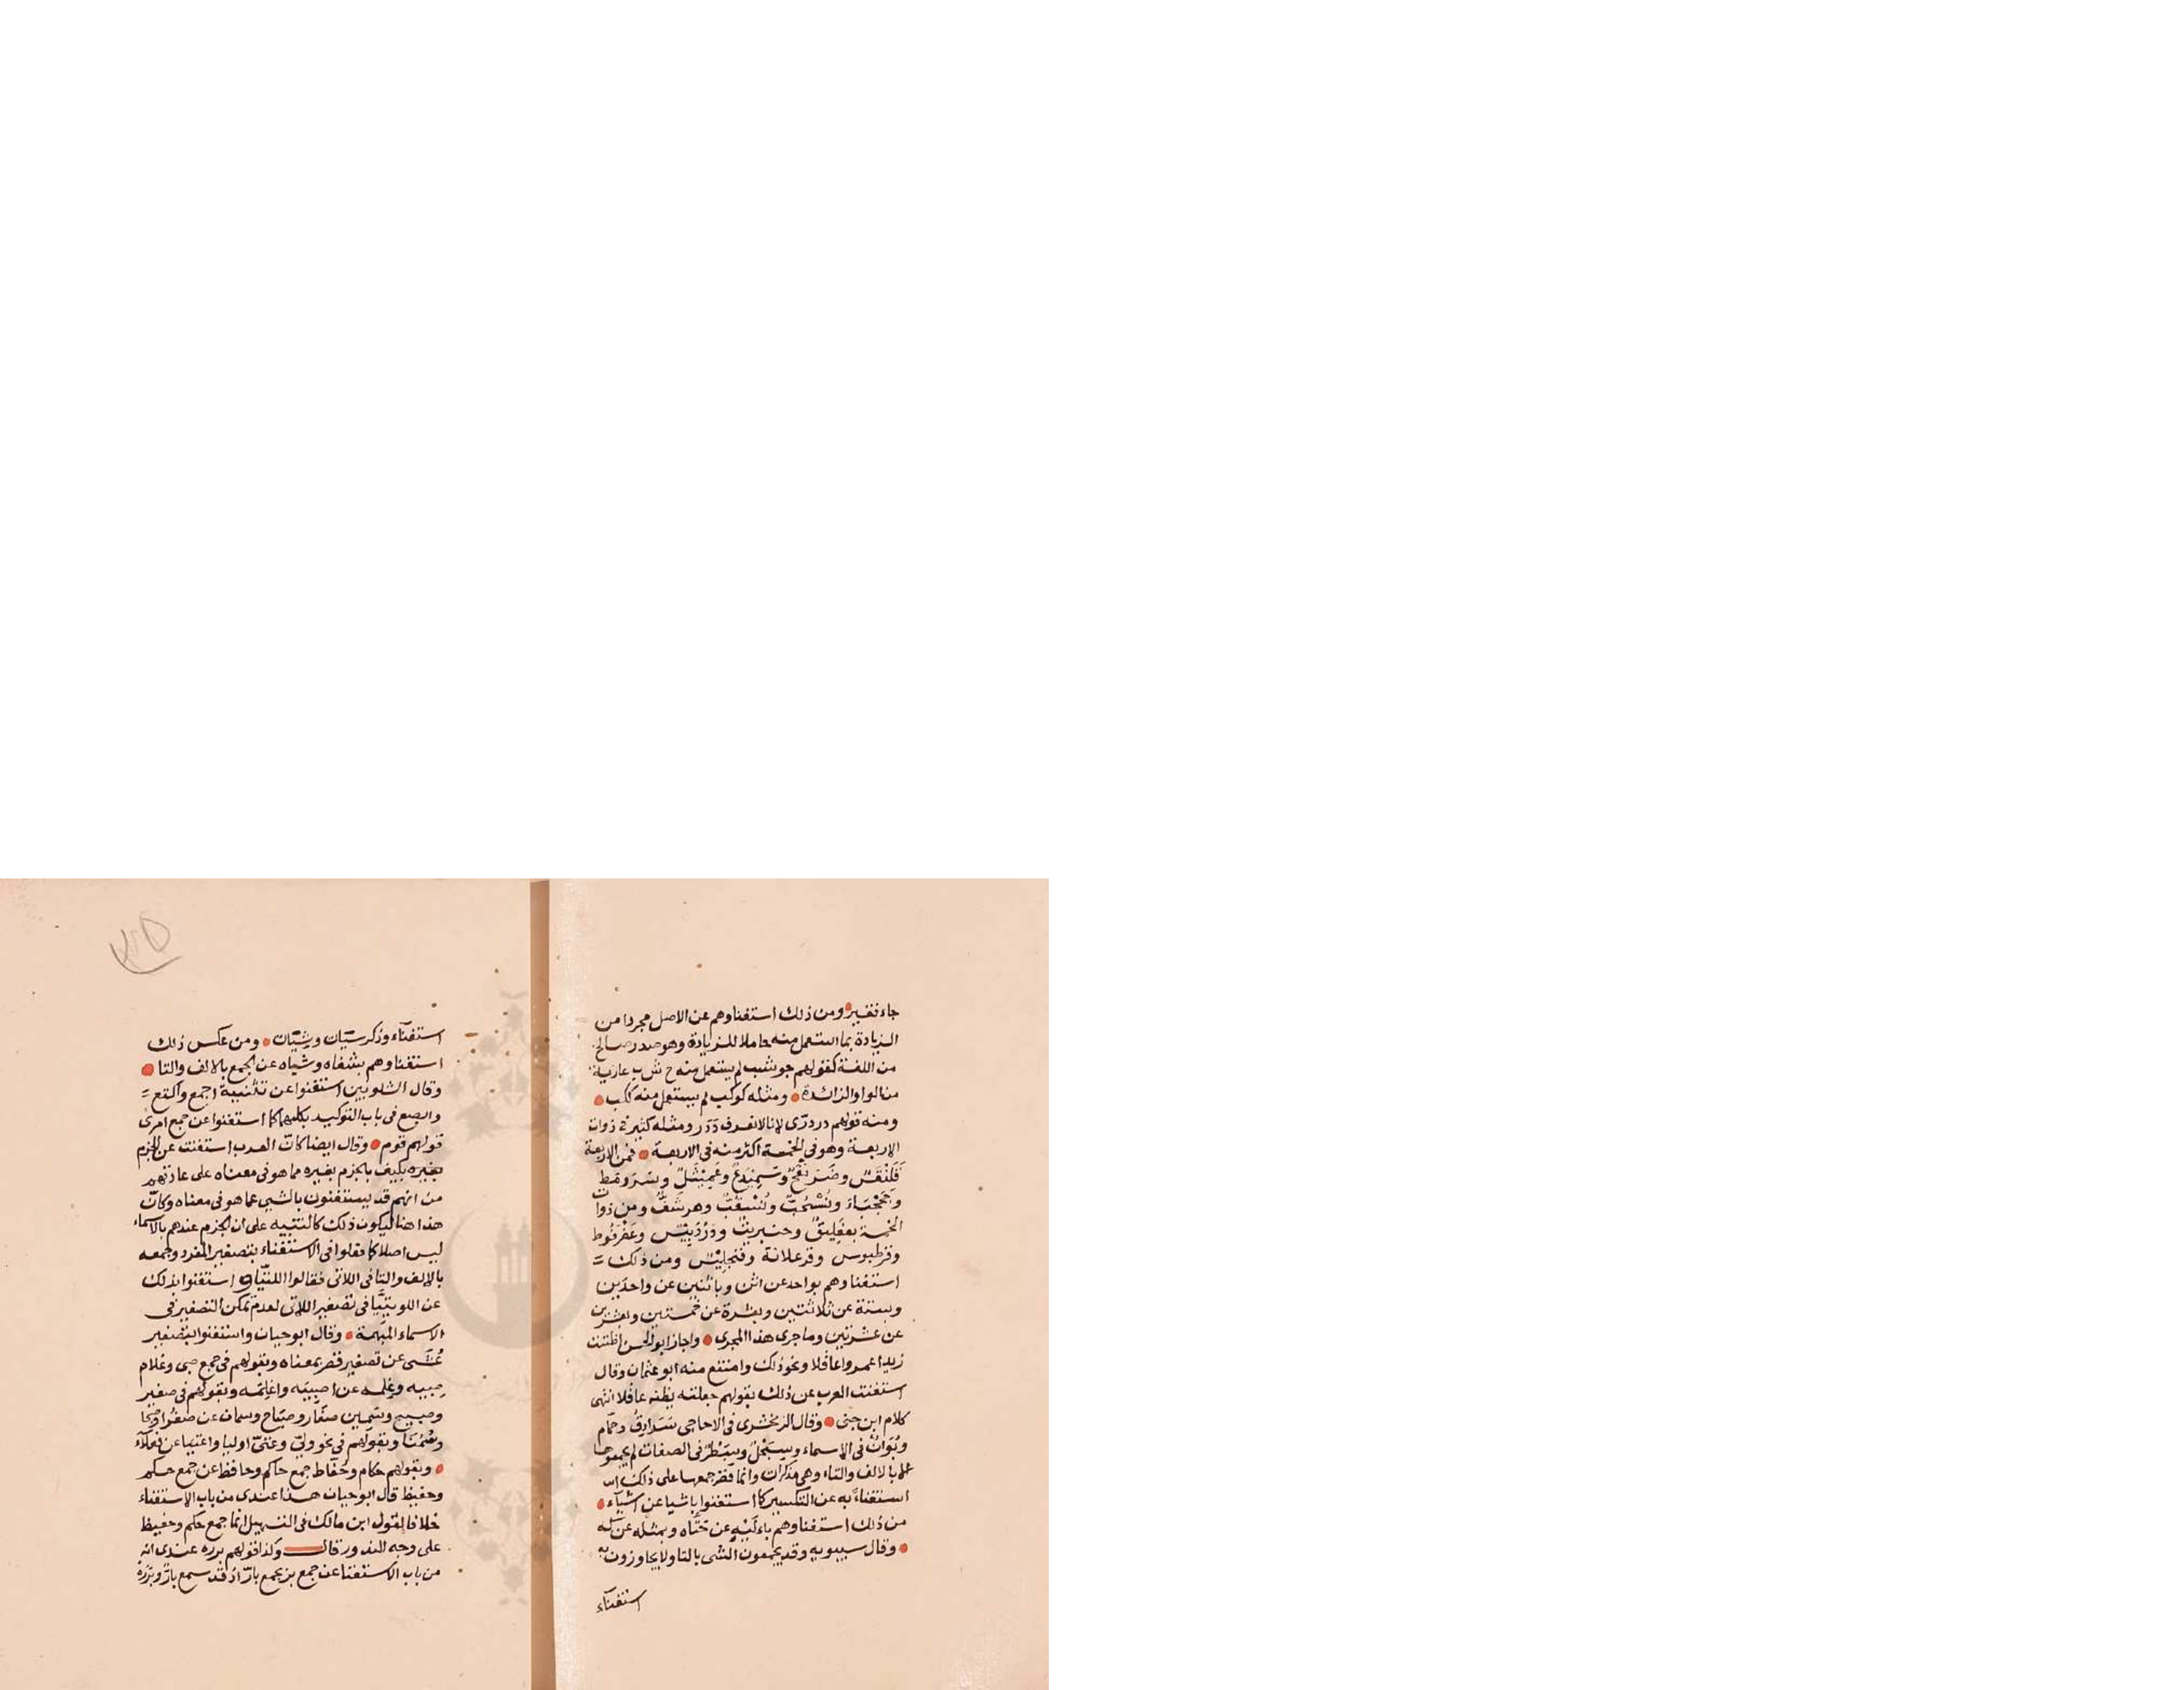 جاء نغير ومن ذلك استغناوهم عن الاصل مجردا من
الزيادة بما استعمل منه حاملا للزيادة وهو صدر صالح
من اللغة كقولهم حوشب لم يستعمل منه ح ش ب عارية
من الواو الزائدة ومثله كوكب لم يستعمل منه ككب
ومنه قولهم دودرى لانا لا نعرف ددر ومثله كثير فى ذوات
الاربعة وهو فى الخمسة اكثر منه فى الاربعة فمن الاربعة
فلنقس وسميدع وعميثل وسرومط
وجحجباء وهرشف ومن ذوات
الخمسة جعفليق وحنبريت ودردبيس وعضرفوط
وقرطبوس وقرعبلانة وفنجليس ومن ذلك
استغناوهم بواحد عن اثن وباثنين عن واحدين
وبستة عن ثلاثتين وبعشرة عن خمستين وبعشرين
عن عشرتين وما جرى هذا المجرى واجاز ابو الحسن اظننت
زيدا عمروا عاقلا ونحو ذلك وامتنع منه ابو عثمان وقال
استغنت العرب عن ذلك بقولهم جعلته يظنه عاقلا انتهى
كلام ابن جنى وقال الزمخشرى فى الاحاجى سرادق وحمام
وبوان فى الاسماء وسبحل وسبطر فى الصفات لم يجمعوها
الا بالالف والتاء وهى مذكرات وانما قصر جمعها على ذلك
استغناء به عن التكسير كما استغنوا باشيا عن اشياء
من ذلك استغناوهم باليه عن حتاه وبمثله عن كه
وقال سيبويه وقد يجمعون الشى بالتا ولا يجاوزون به
استغناء
استغناء وذكر ستيان وشيتان ومن عكس ذلك
استغناوهم بشفاه وشياه عن الجمع بالالف والتا
وقال الشلوبين استغنوا عن تثنية اجمع واكتع
وابصع فى باب التوكيد بكليهما كما استغنوا عن جمع امرئ
قولهم قوم وقال ايضا كان العرب استغنت عن الجزم
بغيره بكيف بالجزم بغيره مما هو فى معناه على عادتهم
من انهم قد يستغنون بالشى عما هو فى معناه وكان
هذا هنا ليكون ذلك كالتنبيه على ان الجزم عندهم بالاسماء
ليس اصلا كما فعلوا فى الاستغناء بتصغير المفرد وجمعه
بالالف والتا فى اللاتى فقالوا اللتيات واستغنوا بذلك
عن اللويتيا فى تصغير اللاتى لعدم تمكن التصغير فى
الاسماء المبهمة وقال ابو حيان واستغنوا بتصغير
عشى عن تصغير قصر بمعناه وبقولهم فى جمع صبى وغلام
صبيه وغلمه عن اصبيه واغلمه وبقولهم فى صغير
وصبيح وسمين صغار وصباح وسمان عن
وبقولهم فى نحو ولى وغنى اوليا واغنيا عن فعلاء
وبقولهم حكام وحفاظ جمع حاكم وحافظ عن جمع حكم
وحفيظ قال ابو حيان هذا عندى من باب الاستغناء
خلافا لقول ابن مالك فى التسهيل انما جمع حكم وحفيظ
على وجه الندور قال وكذا قولهم برره عندى انه
من باب الاستغنا عن جمع بر بجمع بار اذ قد سمع بار وبررة